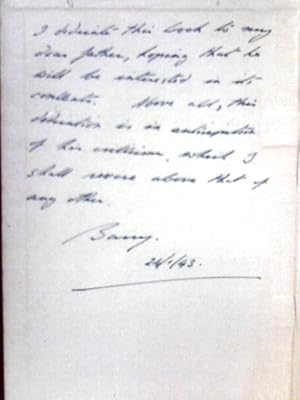 I dedicate this book to my
dear father, hoping that he
will be interested in its
contents. Above all, this
dedication is in anticipation
of his criticism, which I
shall revere above that of
any other.
Barry.
24/-/43.